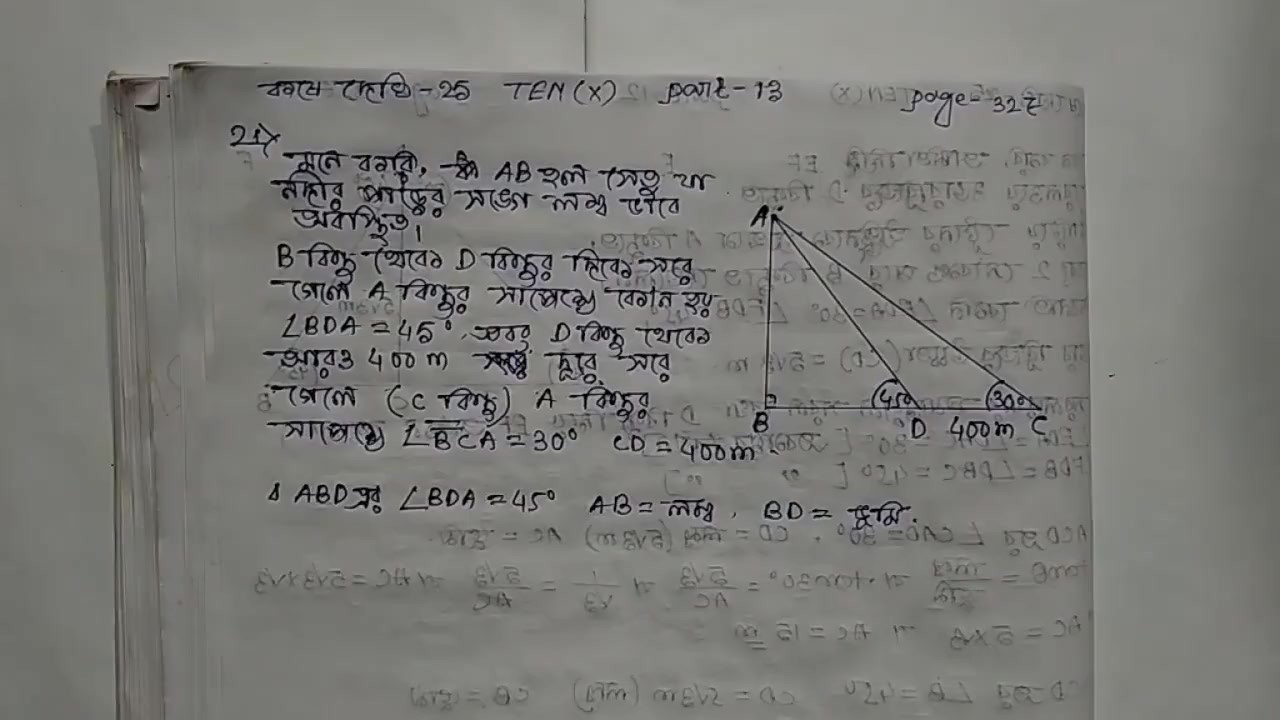 কষে দেখি - 25 TEN (X) part - 13 page = 327
21)
মনে করি, AB হল সেতু যা
নদীর পাড়ের সঙ্গে লম্ব ভাবে
অবস্থিত।
B বিন্দু থেকে D বিন্দুর দিকে সরে
গেলে A বিন্দুর সাপেক্ষে কোন হয়
∠BDA = 45°. এবং D বিন্দু থেকে
আরও 400 m দূরে সরে
গেলে (C বিন্দু) A বিন্দুর
সাপেক্ষে ∠BCA = 30° CD = 400m
Δ ABD এর ∠BDA = 45° AB = লম্ব, BD = ভূমি.
A
45°
30°
B
D
400m
C